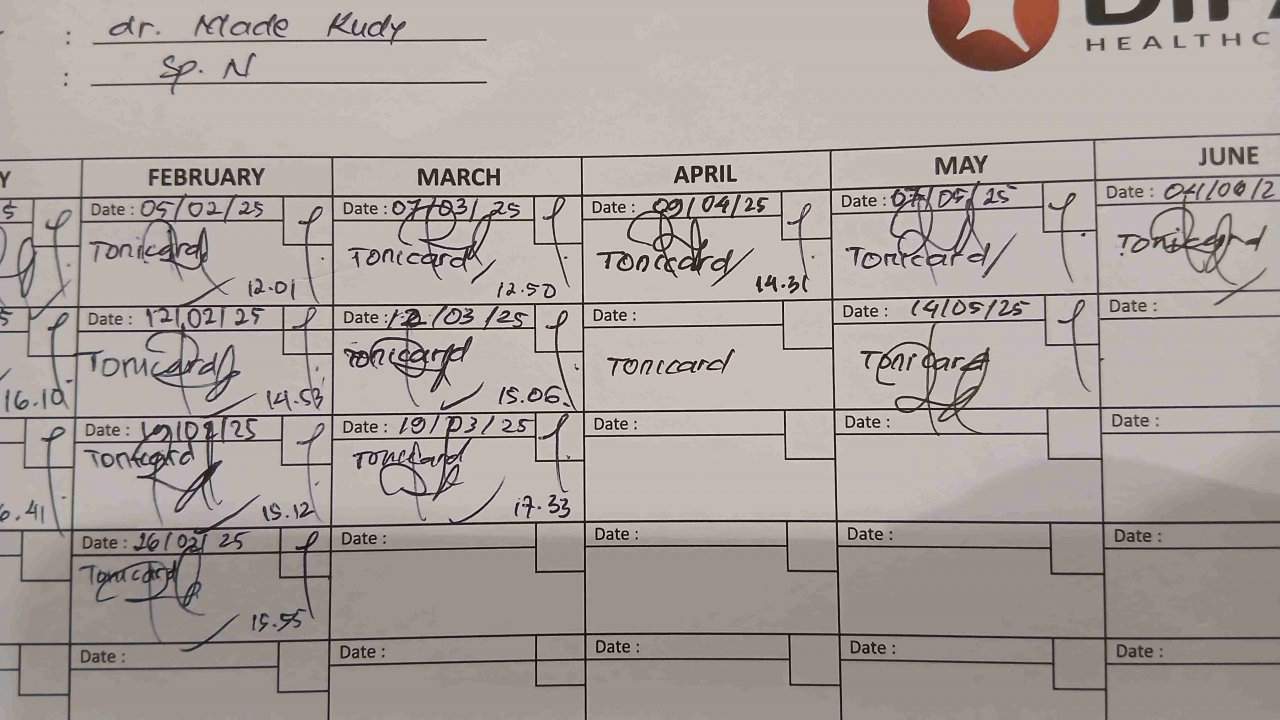 : dr. Made Rudy
: Sp. N
HEALTHC
Y FEBRUARY MARCH APRIL MAY JUNE
Date : 05/02/25 Date : 07/03/25 Date : 09/04/25 Date : 07/05/25 Date : 04/06/2
Tonicard Tonicard Tonicard Tonicard Tonicard
12.01 12.50 14.31
Date : 12/02/25 Date : 12/03/25 Date : Date : 14/05/25 Date :
Tonicard Tonicard Tonicard Tonicard
16.10 14.53 15.06
Date : 19/02/25 Date : 19/03/25 Date : Date : Date :
Tonicard Tonicard
6.41 15.12 17.33
Date : 26/02/25 Date : Date : Date : Date :
Tonicard
15.55
Date : Date : Date : Date : Date :